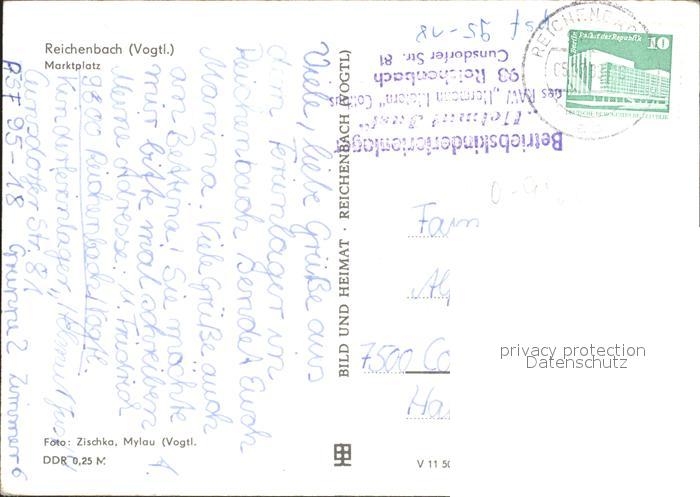 Reichenbach (Vogtl.)
Marktplatz
Viele, liebe Grüße aus
dem Ferienlager in
Reichenbach sendet Euch
Marina. Viele Grüße auch
an Bettina! Sie möchte
mir bitte mal schreiben
Meine Adresse: M.
9800 Reichenbach/Vogtl.
Kinderferienlager
Cunsdorfer Str. 81
PSF 95-18 Gruppe 2 Zimmer 6
Foto: Zischka, Mylau (Vogtl.
DDR 0,25 M
BILD UND HEIMAT · REICHENBACH (VOGTL)
V 11 50
Betriebskinderferienlager
93 Reichenbach
Cunsdorfer Str. 81
PSF 95-18
REICHENBA
Berlin, Palast der Republik
10
DEUTSCHE DEMOKRATISCHE REPUBLIK
Fam
7500 Co
privacy protection
Datenschutz